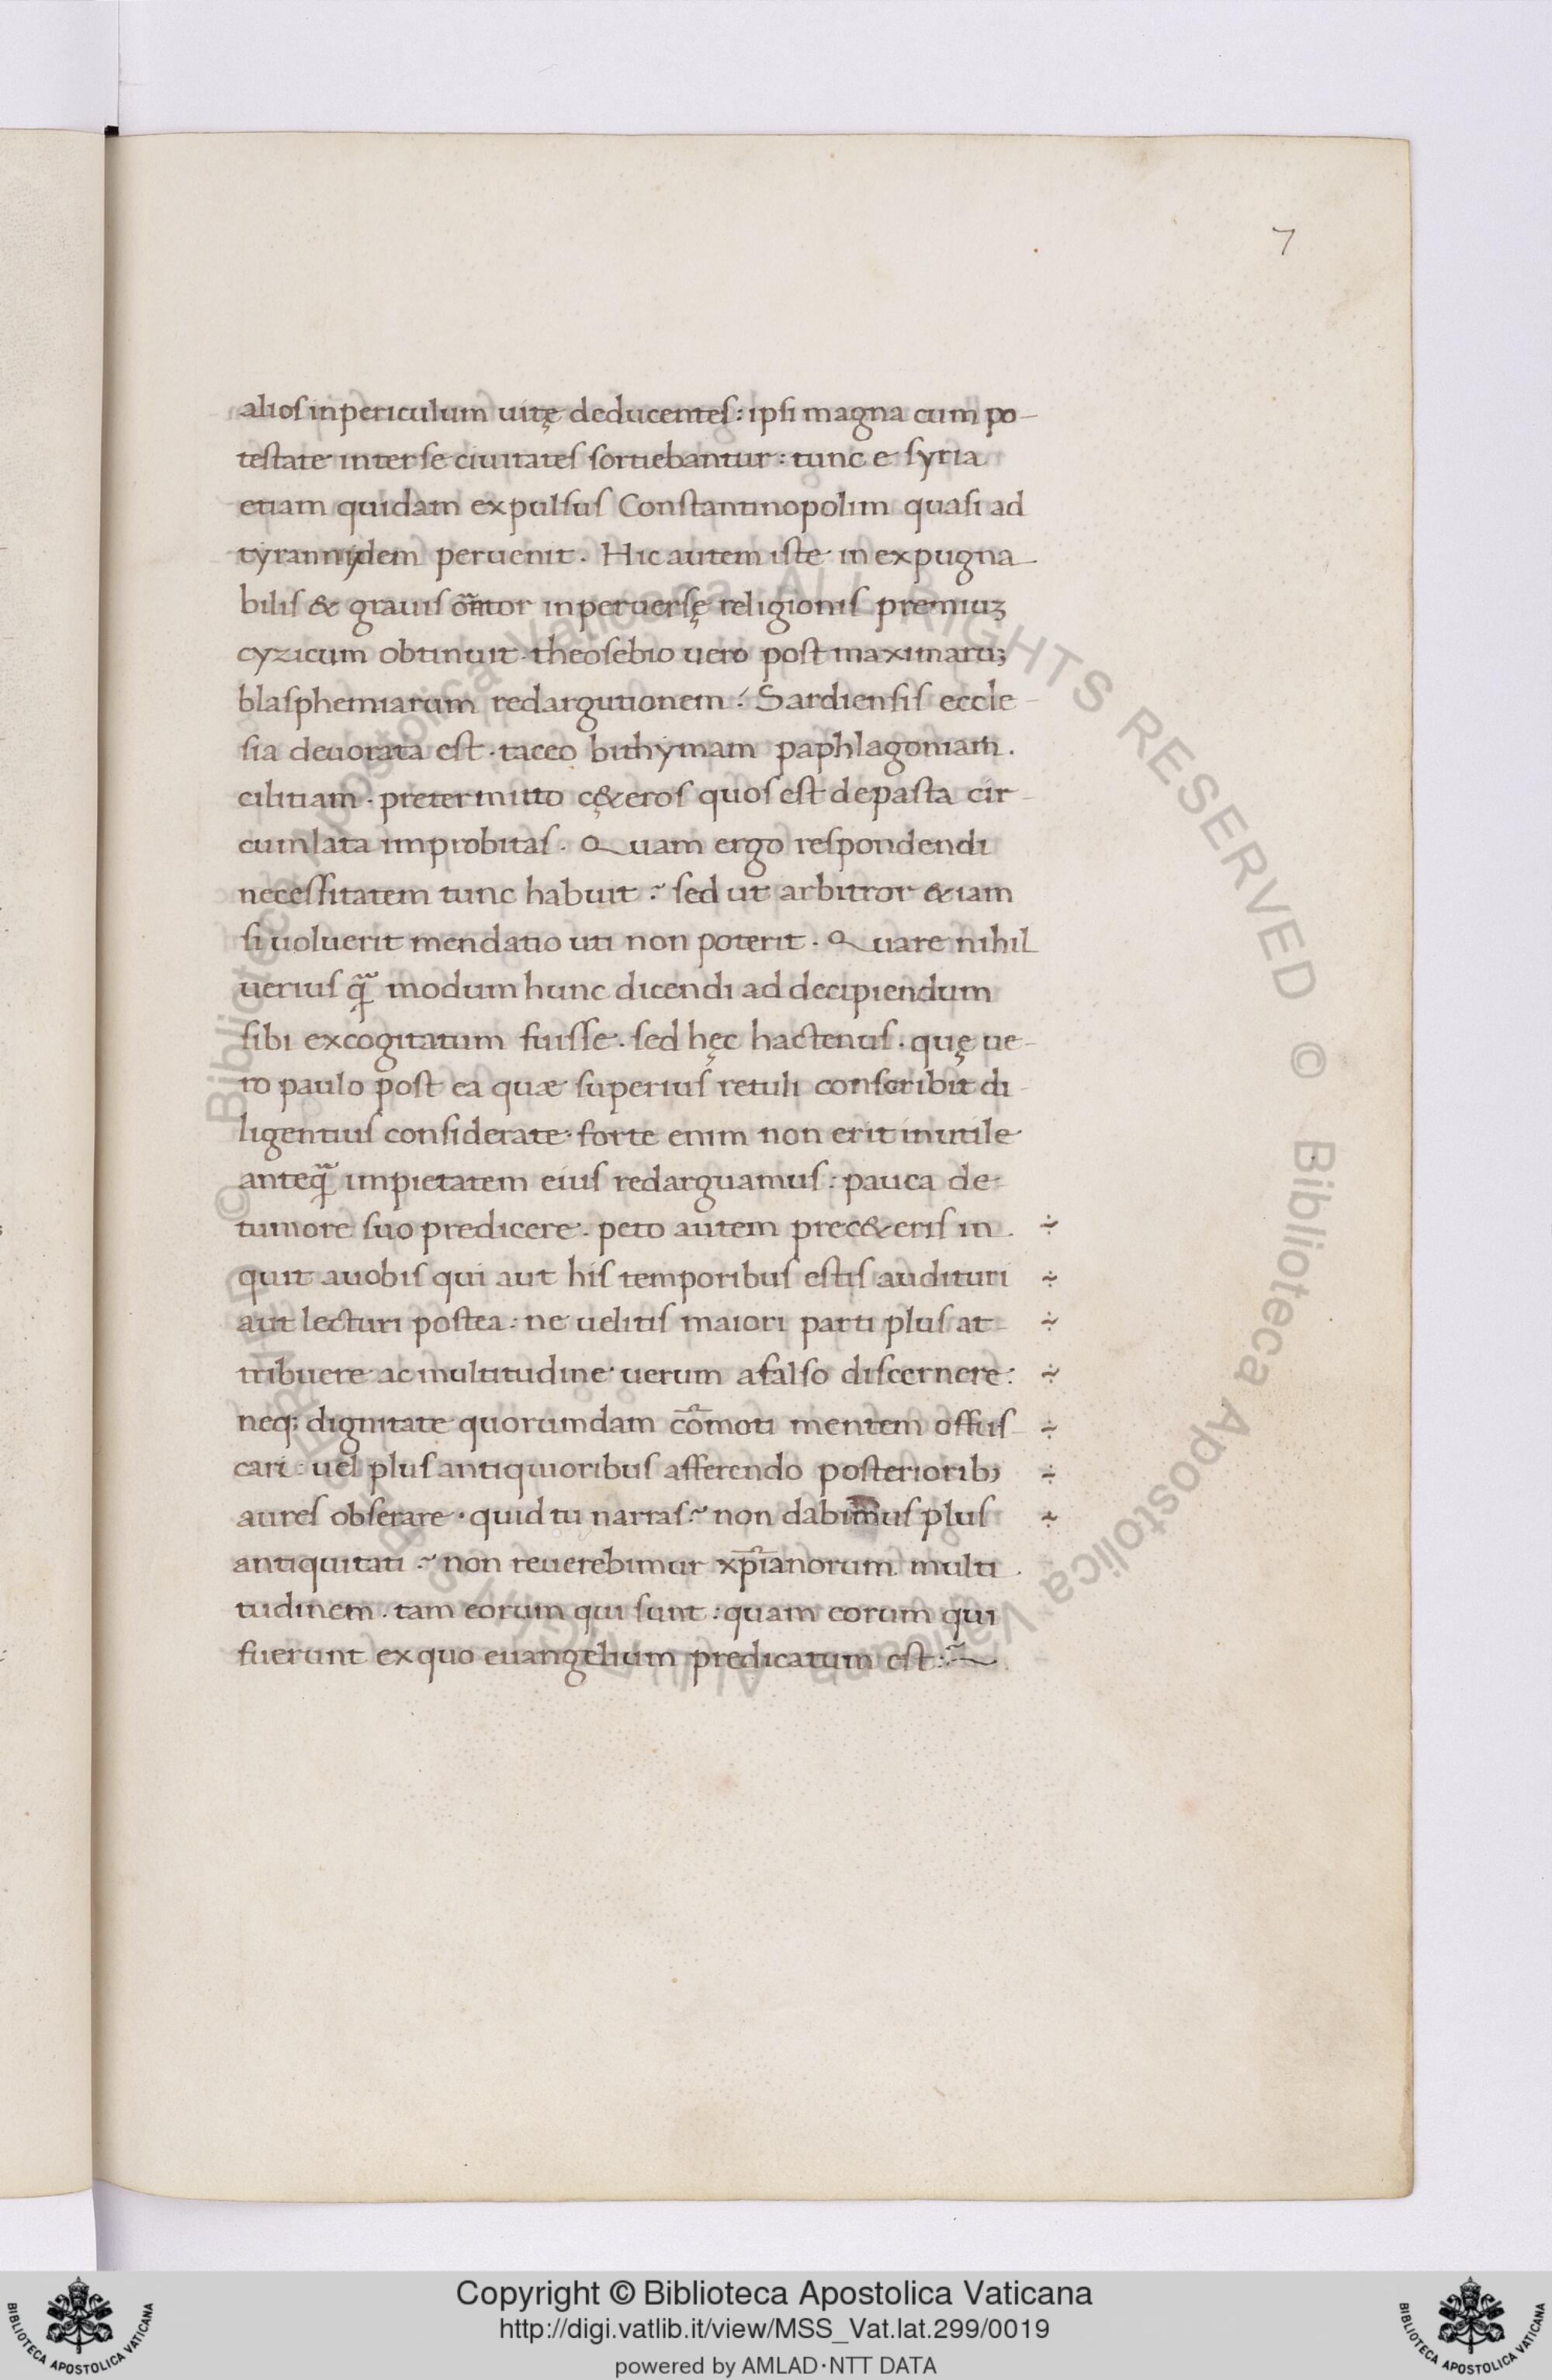 7
alios in periculum uitę deducentes: ipsi magna cum po-
testate inter se ciuitates sortiebantur: tunc e syria
etiam quidam expulsus Constantinopolim quasi ad
tyrannydem peruenit. Hic autem iste inexpugna-
bilis & grauis orator in peruersę religionis premiuʒ
cyzicum obtinuit. theosebio uero post maximaruʒ
blasphemiarum redargutionem: Sardiensis eccle-
sia deuorata est. taceo bithyniam paphlagoniam.
cilitiam. pretermitto cę&eros quos est depasta cir-
cumlata improbitas. Quam ergo respondendi
necessitatem tunc habuit? sed ut arbitror &iam
si uoluerit mendatio uti non poterit. Quare nihil
uerius q̃ modum hunc dicendi ad decipiendum
sibi excogitatum fuisse. sed hęc hactenus. quę ue-
ro paulo post ea quæ superius retuli conscribit di-
ligentius considerate. forte enim non erit inutile
anteq̃ impietatem eius redarguamus: pauca de-
tumore suo predicere. peto autem prec&eris in. ÷
quit auobis qui aut his temporibus estis audituri ÷
aut lecturi postea: ne uelitis maiori parti plus at- ÷
tribuere ac multitudine uerum a falso discernere: ÷
neq; dignitate quorumdam cōmoti mentem offus- ÷
cari: uel plus antiquioribus afferendo posteriorib; ÷
aures obserare. quid tu narras? non dabimus plus ÷
antiquitati? non reuerebimur xp̄ianorum multi-
tudinem. tam eorum qui sunt: quam eorum qui
fuerunt ex quo euangelium predicatum est:~
© Biblioteca Apostolica Vaticana ALL RIGHTS RESERVED © Biblioteca Apostolica Vaticana ALL RIGHTS RESERVED
BIBLIOTECA APOSTOLICA VATICANA
Copyright © Biblioteca Apostolica Vaticana
http://digi.vatlib.it/view/MSS_Vat.lat.299/0019
powered by AMLAD·NTT DATA
BIBLIOTECA APOSTOLICA VATICANA